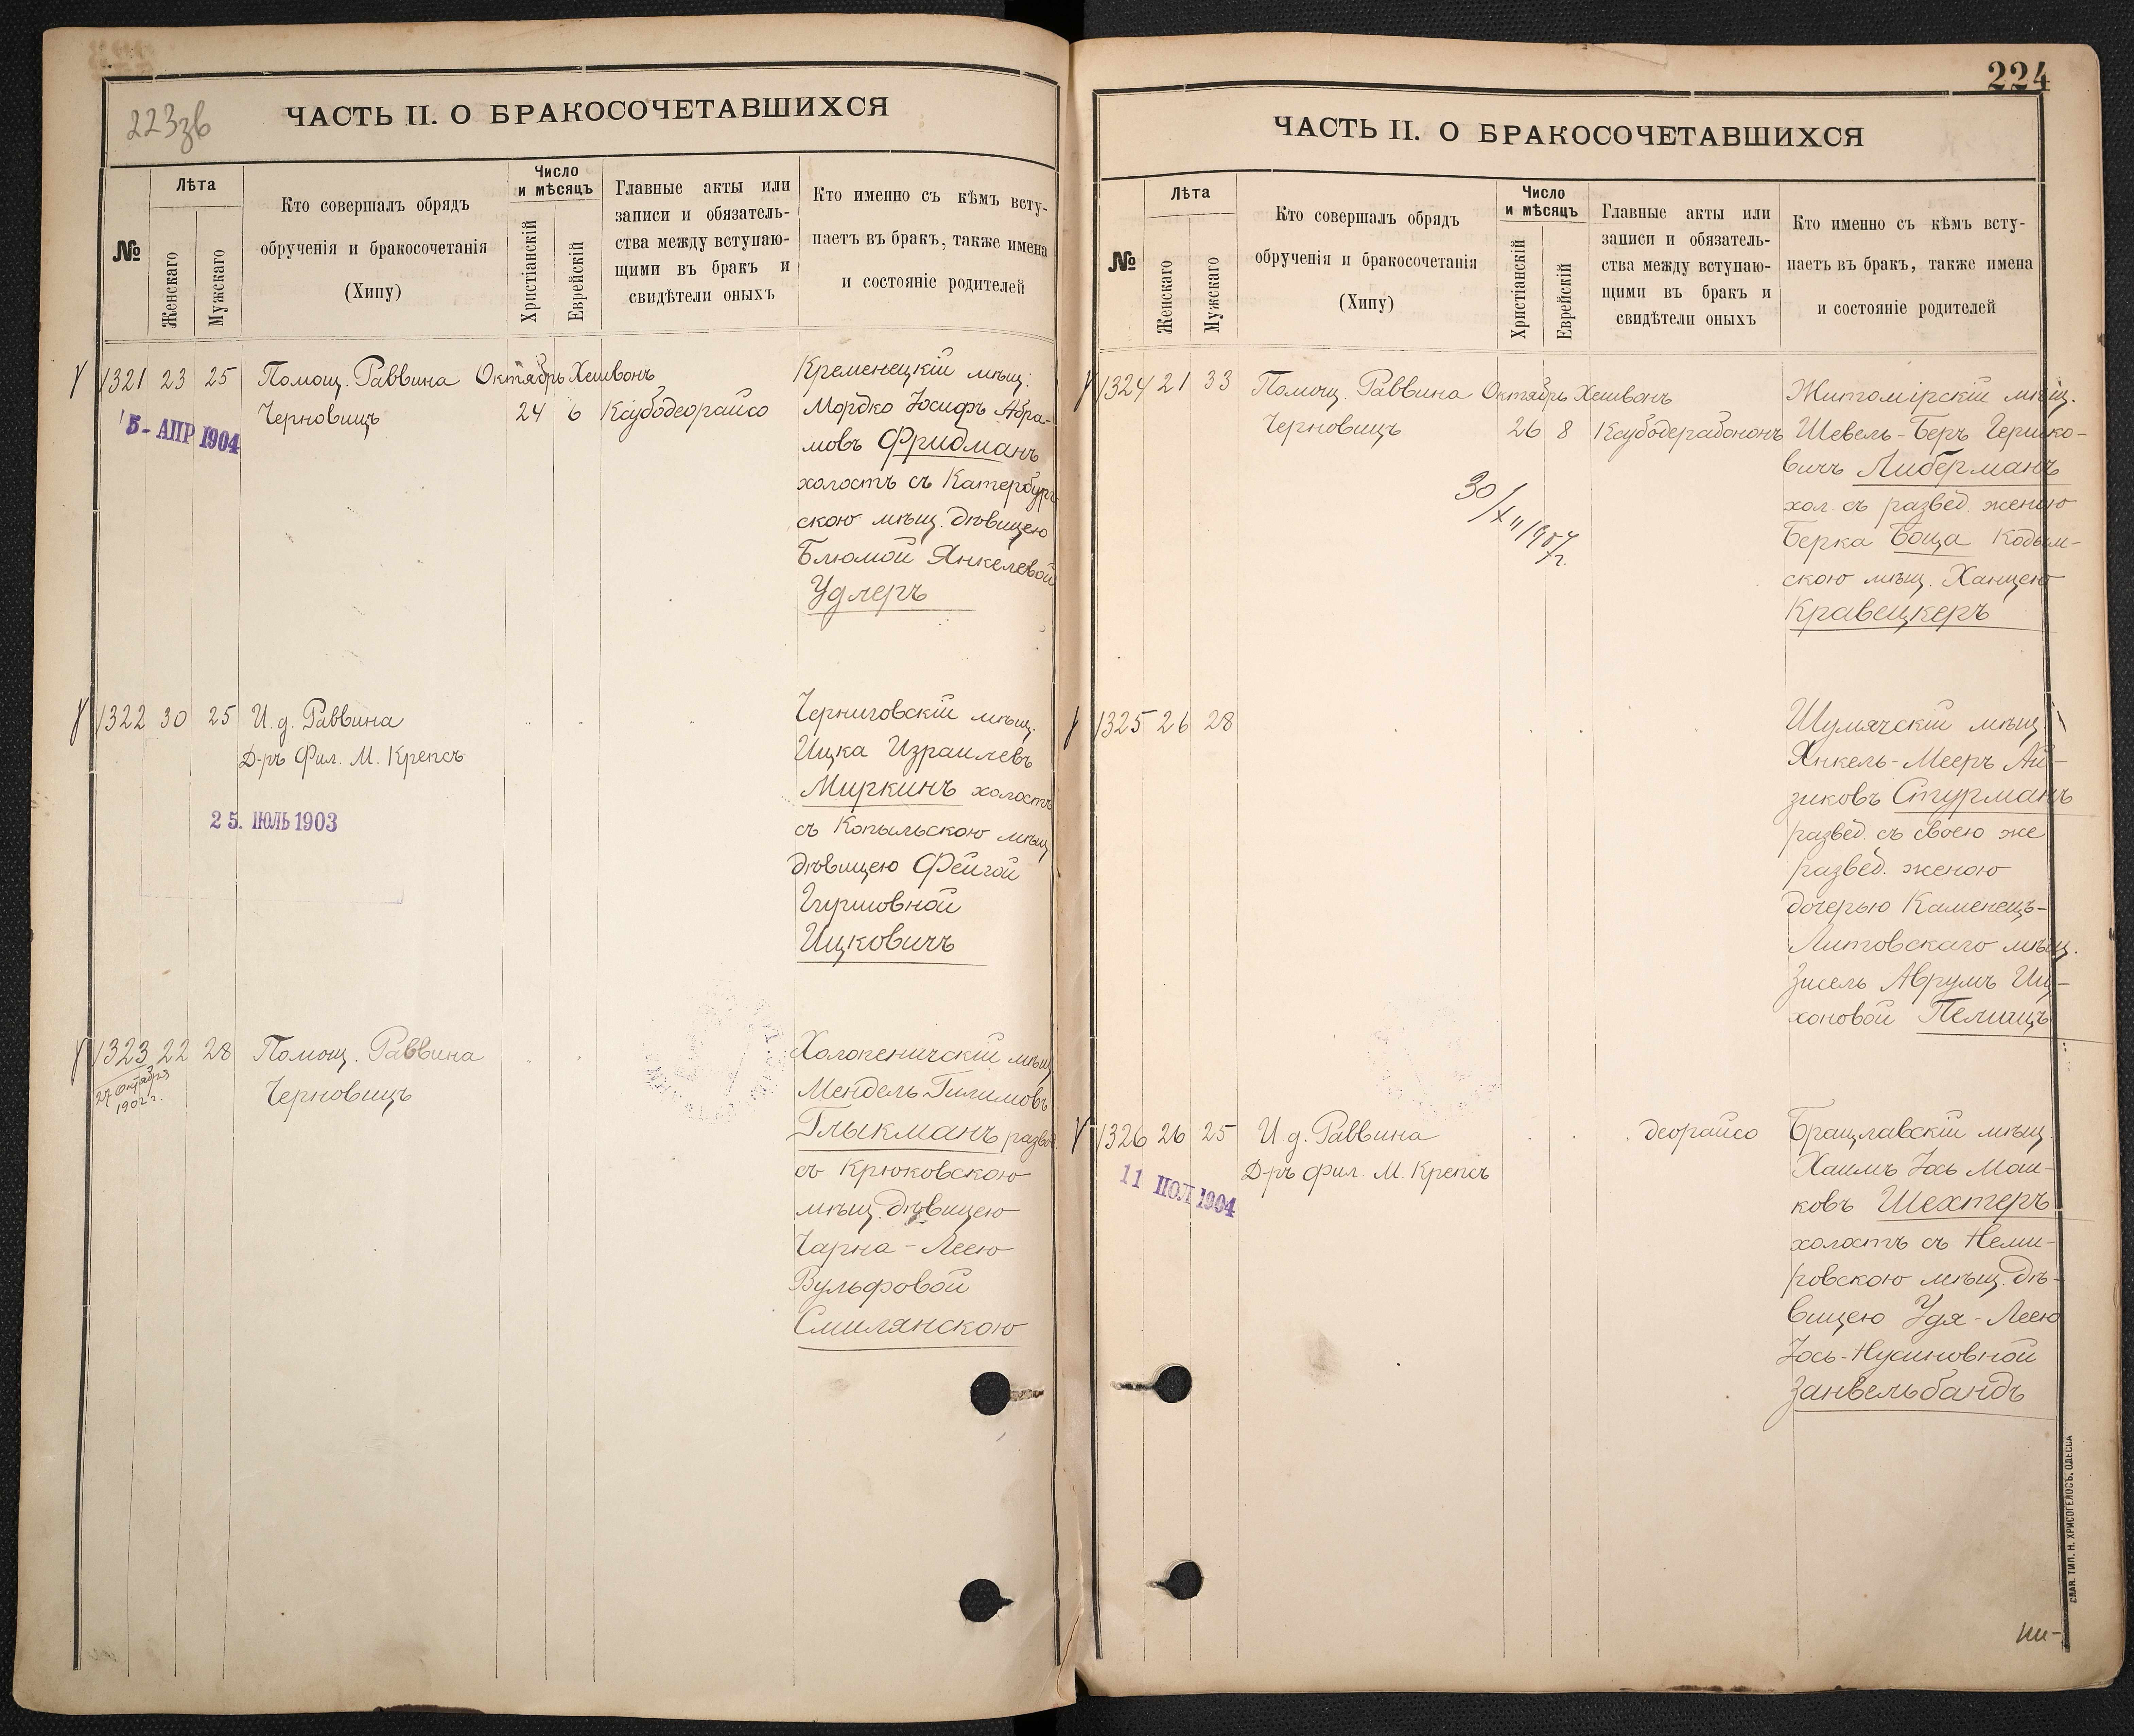 223зв
ЧАСТЬ II. О БРАКОСОЧЕТАВШИХСЯ
№
Лѣта
Женскаго
Мужскаго
Кто совершалъ обрядъ
обрученія и бракосочетанія
(Хипу)
Число
и мѣсяцъ
Христіанскій
Еврейскій
Главные акты или
записи и обязатель-
ства между вступаю-
щими въ бракъ и
свидѣтели оныхъ
Кто именно съ кѣмъ всту-
паетъ въ бракъ, также имена
и состояніе родителей
1321 23 25 Помощ. Раввина Октябрь Хешвонъ
Черновицъ 24 6 Ксубодеорайсо
5 - АПР 1904
Кременецкій мѣщ.
Мордко Іосифъ Абра-
мовъ Фридманъ
холостъ съ Катербург-
скою мѣщ. дѣвицею
Блюмой Янкелевой
Удлеръ
1322 30 25 И. д. Раввина
Д-ръ Фил. М. Крепсъ
25. ІЮЛЬ 1903
Черниговскій мѣщ.
Ицка Израилевъ
Миркинъ холостъ
съ Копыльскою мѣщ
дѣвицею Фейгой
Гиршовной
Ицковичъ
1323 22 28 Помощ. Раввина
Черновицъ
27 Октября
1902 г.
Холопеничскій мѣщ
Мендель Гилимовъ
Глыкманъ развед
съ Крюковскою
мѣщ. дѣвицею
Чарна-Леею
Вульфовой
Смилянскою
224
ЧАСТЬ II. О БРАКОСОЧЕТАВШИХСЯ
№
Лѣта
Женскаго
Мужскаго
Кто совершалъ обрядъ
обрученія и бракосочетанія
(Хипу)
Число
и мѣсяцъ
Христіанскій
Еврейскій
Главные акты или
записи и обязатель-
ства между вступаю-
щими въ бракъ и
свидѣтели оныхъ
Кто именно съ кѣмъ всту-
паетъ въ бракъ, также имена
и состояніе родителей
1324 21 33 Помощ. Раввина Октябрь Хешвонъ
Черновицъ 26 8 Ксубодерабононъ
Житомірскій мѣщ.
Шевель-Беръ Гершко-
вичъ Либерманъ
хол. съ развед. женою
Берка Боща Кодым-
скою мѣщ. Ханцею
Кравецкеръ
1325 26 28
Шумячскій мѣщ.
Янкель-Мееръ Ай-
зиковъ Стурманъ
развед. съ своею же
развед. женою
дочерью Каменецъ-
Литовскаго мѣщ.
Зисель Аврумъ Иц-
хоновой
1326 26 25 И. д. Раввина
Д-ръ фил. М. Крепсъ
деорайсо
11 ІЮЛ 1904
Брацлавскій мѣщ.
Хаимъ Іось Мош-
ковъ Шехтеръ
холостъ съ Неми-
ровскою мѣщ. дѣ-
вицею Удя-Леею
Іось-Нусиновной
Занвельбандъ
СЛАВ. ТИП. Н. ХРИСОГЕЛОСЪ, ОДЕССА